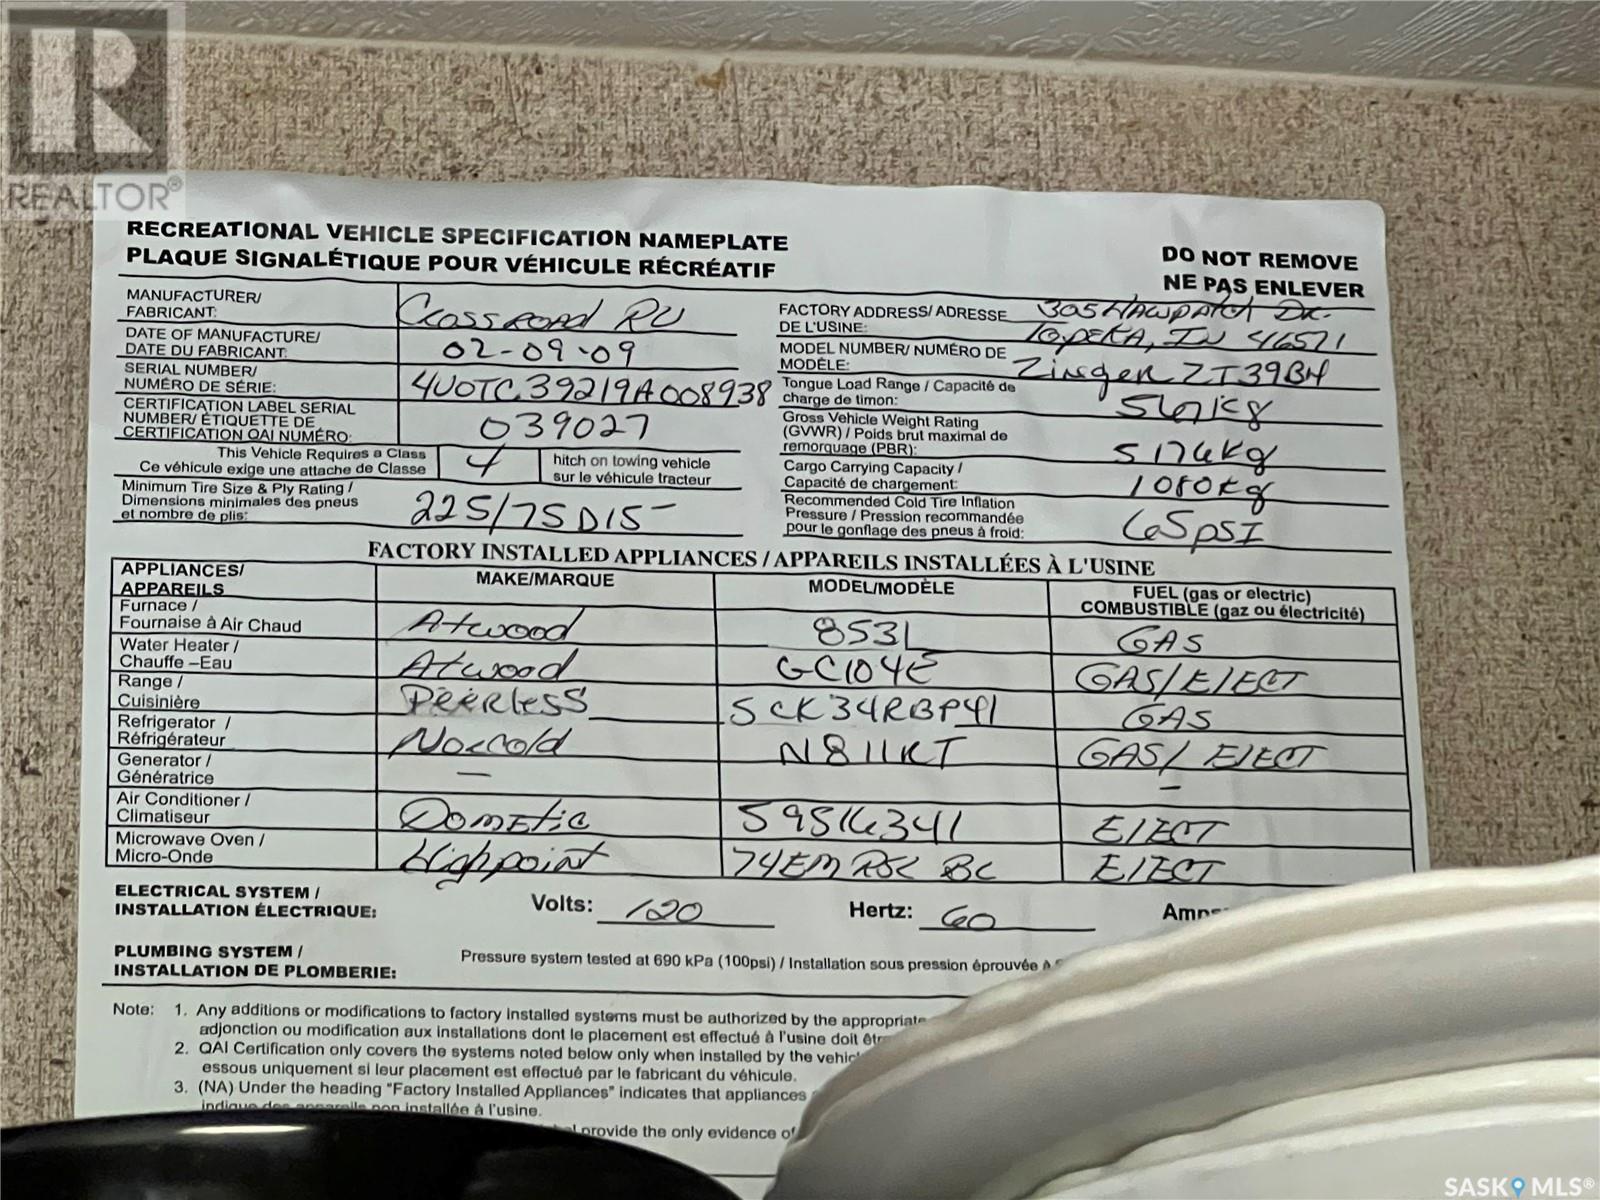 REALTOR®
RECREATIONAL VEHICLE SPECIFICATION NAMEPLATE
PLAQUE SIGNALÉTIQUE POUR VÉHICULE RÉCRÉATIF
DO NOT REMOVE
NE PAS ENLEVER
MANUFACTURER/
FABRICANT:
CROSSROAD RV
DATE OF MANUFACTURE/
DATE DU FABRICANT:
02-09-09
SERIAL NUMBER/
NUMÉRO DE SÉRIE:
4U0TC39219A008938
CERTIFICATION LABEL SERIAL
NUMBER/ ÉTIQUETTE DE
CERTIFICATION QAI NUMÉRO:
039027
This Vehicle Requires a Class
Ce véhicule exige une attache de Classe
4
hitch on towing vehicle
sur le véhicule tracteur
Minimum Tire Size & Ply Rating /
Dimensions minimales des pneus
et nombre de plis:
225/75D15
FACTORY ADDRESS/ ADRESSE
DE L'USINE:
305 HAWPATCH DR.
TOPEKA, IN 46571
MODEL NUMBER/ NUMÉRO DE
MODÈLE:
Zinger ZT39BH
Tongue Load Range / Capacité de
charge de timon:
567kg
Gross Vehicle Weight Rating
(GVWR) / Poids brut maximal de
remorquage (PBR):
5176kg
Cargo Carrying Capacity /
Capacité de chargement:
1080kg
Recommended Cold Tire Inflation
Pressure / Pression recommandée
pour le gonflage des pneus à froid:
65psI
FACTORY INSTALLED APPLIANCES / APPAREILS INSTALLÉES À L'USINE
APPLIANCES/
APPAREILS
MAKE/MARQUE
MODEL/MODÈLE
FUEL (gas or electric)
COMBUSTIBLE (gaz ou électricité)
Furnace /
Fournaise à Air Chaud
Atwood
8531
GAS
Water Heater /
Chauffe –Eau
Atwood
GC104E
GAS/ElECT
Range /
Cuisinière
PEERlESS
SCK34RBP41
GAS
Refrigerator /
Réfrigérateur
Norcold
N811RT
GAS/ ElECT
Generator /
Génératrice
—
–
Air Conditioner /
Climatiseur
DOMEtic
59516341
ElECT
Microwave Oven /
Micro-Onde
Highpoint
ElECT
ELECTRICAL SYSTEM /
INSTALLATION ÉLECTRIQUE:
Volts: 120
Hertz: 60
Amps
PLUMBING SYSTEM /
INSTALLATION DE PLOMBERIE:
Pressure system tested at 690 kPa (100psi) / Installation sous pression éprouvée à
Note: 1. Any additions or modifications to factory installed systems must be authorized by the appropriate
adjonction ou modification aux installations dont le placement est effectué à l'usine doit
2. QAI Certification only covers the systems noted below only when installed by the
essous uniquement si leur placement est effectué par le fabricant du véhicule.
3. (NA) Under the heading "Factory Installed Appliances" indicates that appliances
indique des appareils non installée à l'usine.
provide the only evidence of
SASK MLS®